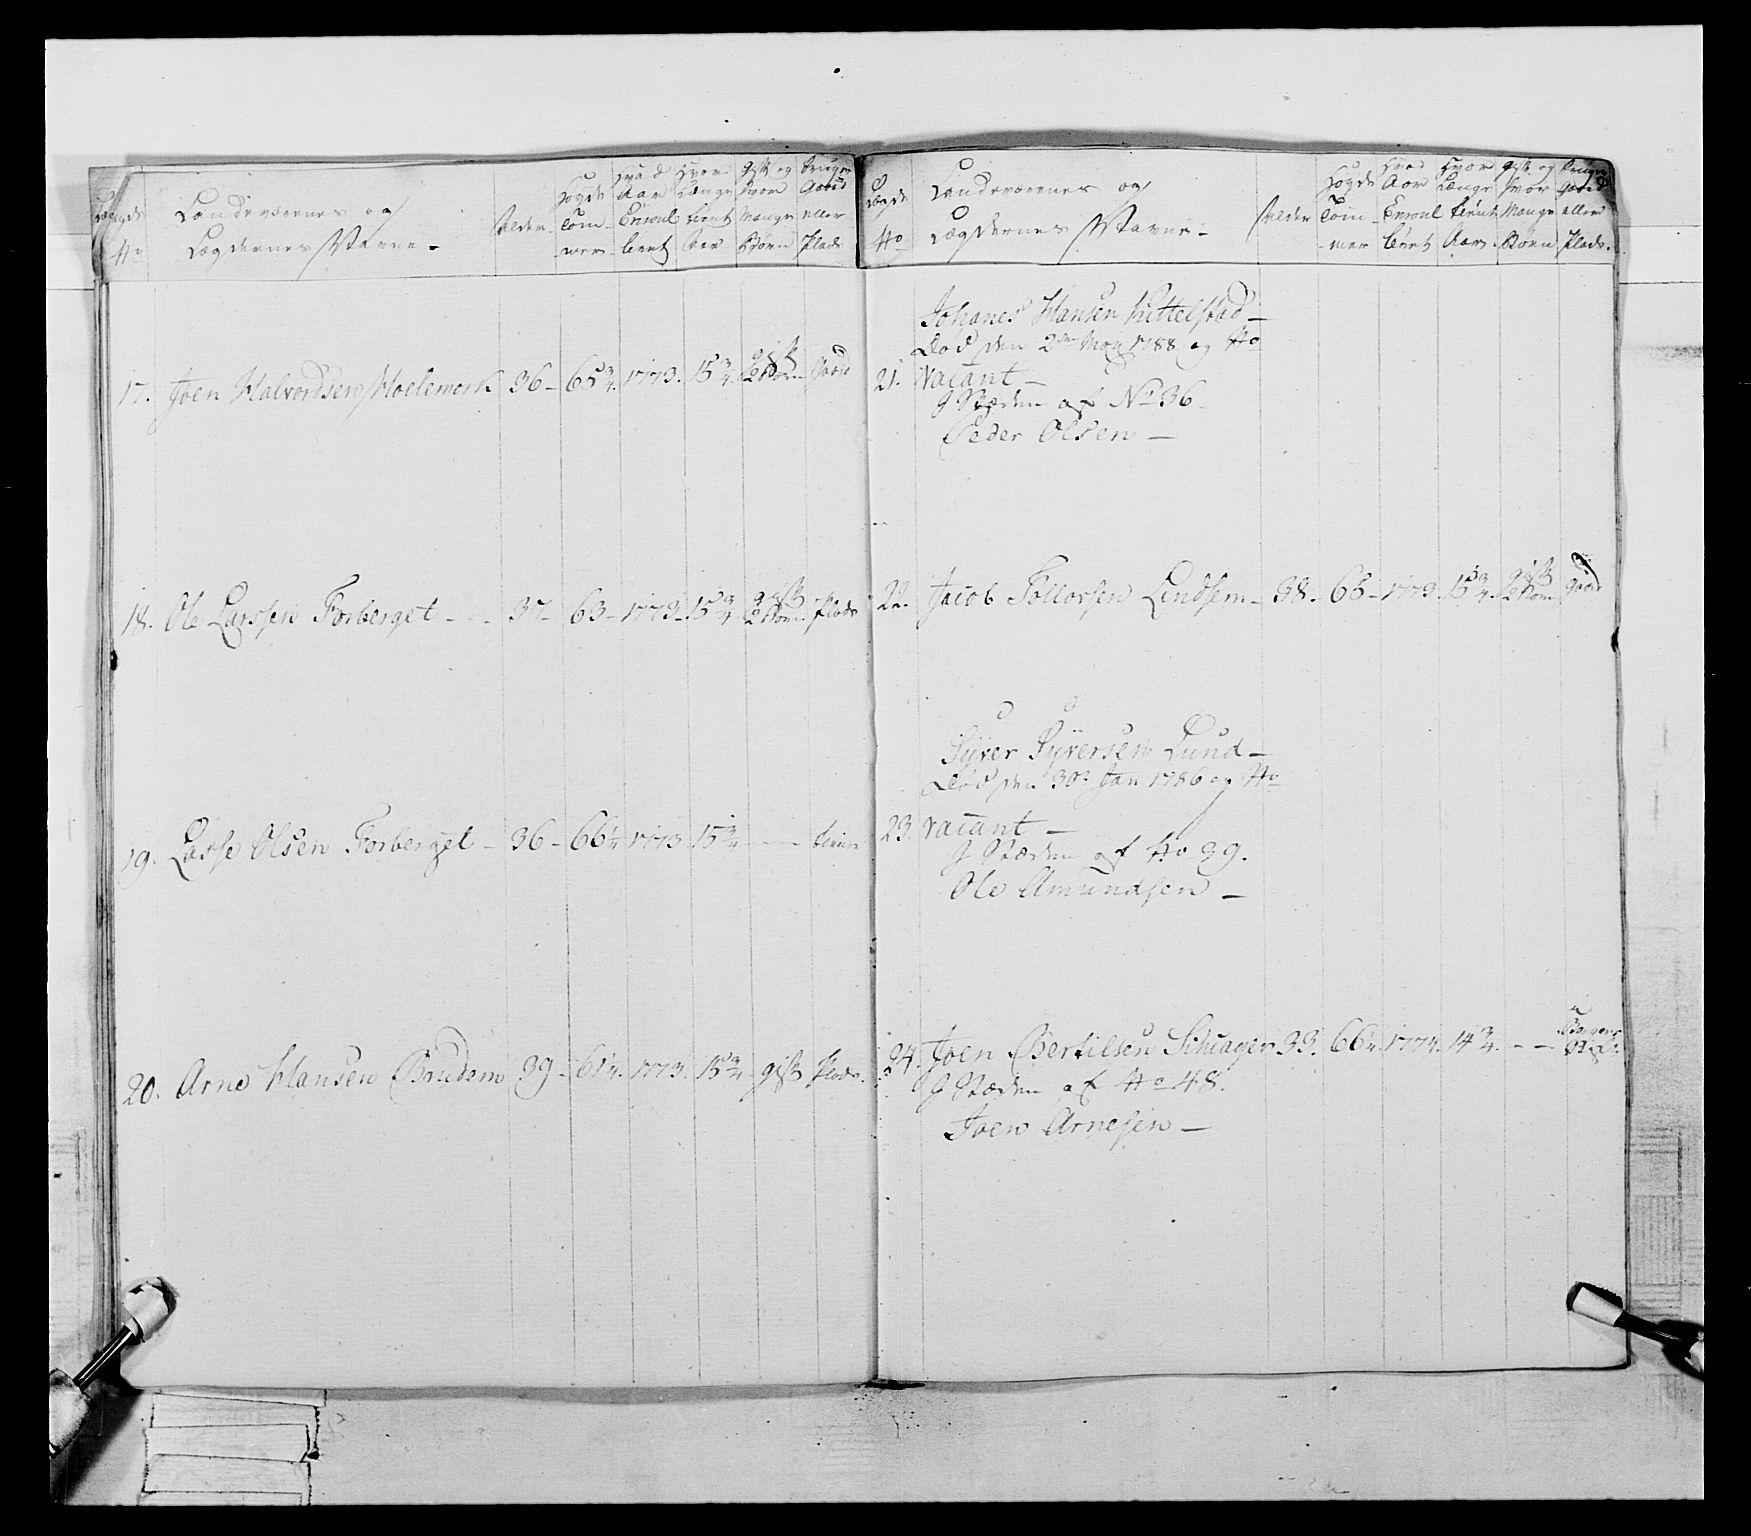 Lægds No
Landeværnes og Lægdernes Navne -
Alder
Høyde Tom- mer
Hvad Aar Enroulleret
Hvor Længe tient Aar
Gift og hvor Mange Børn
Bruger Gaard eller Plads
17. Joen Halvordsen Moelemork 36 - 65 3/4. 1773. 15 3/4. gift 2 Børn Gaard
18. Ole Larssen Forberget - - - 37 - 63 - 1773 - 15 3/4 gift 2 Børn Plads
19. Lasse Olsen Forberget - 36 - 66 1/4 1773 15 3/4 - - - tiener
20. Arne Hansen Brudem 39 - 61 1/4. 1773. 15 3/4 gift Plads.
Lægds No
Landeværnes og Lægdernes Navne -
Alder
Høyde Tom- mer
Hvad Aar Enroulleret
Hvor Længe tient Aar
Gift og hvor Mange Børn
Bruger Gaard eller Plads.
Johanes Hansen Kittelstad -
Død den 2den May 1788 og No
21. Vacant -
I Stæden af No 36 -
Peder Olsen -
22. Jacob Tollorsen Lindsem - 38 - 65 - 1773. 15 3/4. gift 2 Børn Gaard
Syver Syversen Lund -
Død den 30te Jan 1786 og No
23. vacant -
I Stæden af No 39.
Ole Amundsen -
24. Joen Bertilsen Schiager 33. 66 1/4. 1774. 14 3/4. - -
I Stæden af No 48.
Joen Arnesen -